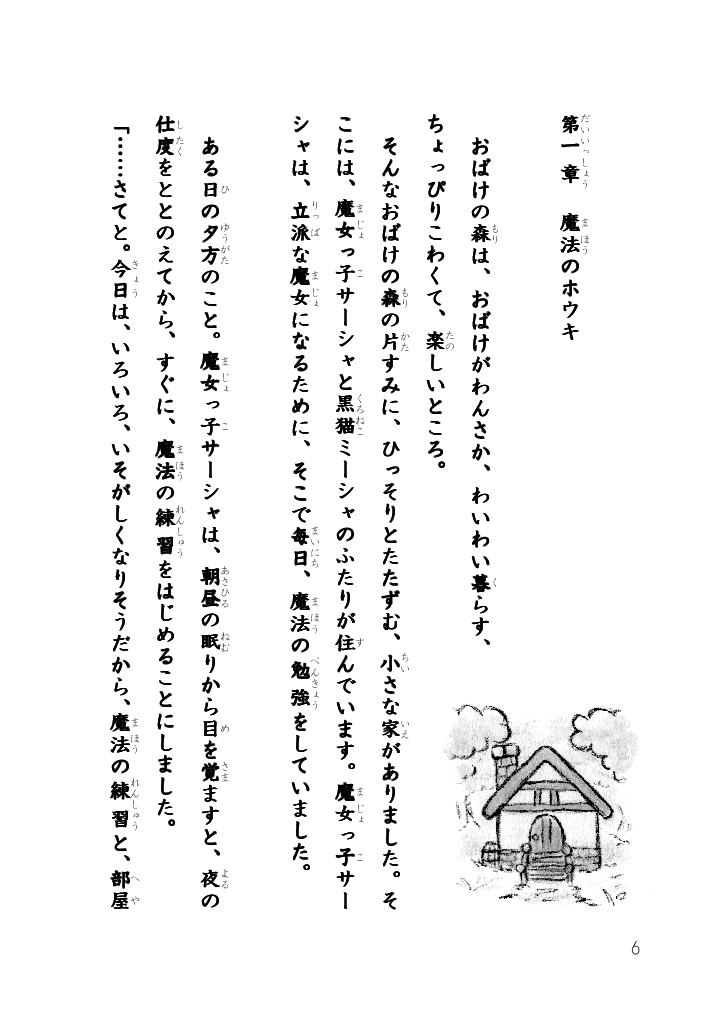 第一章　魔法のホウキ
おばけの森は、おばけがわんさか、わいわい暮らす、
ちょっぴりこわくて、楽しいところ。
そんなおばけの森の片すみに、ひっそりとたたずむ、小さな家がありました。そ
こには、魔女っ子サーシャと黒猫ミーシャのふたりが住んでいます。魔女っ子サー
シャは、立派な魔女になるために、そこで毎日、魔法の勉強をしていました。
ある日の夕方のこと。魔女っ子サーシャは、朝昼の眠りから目を覚ますと、夜の
仕度をととのえてから、すぐに、魔法の練習をはじめることにしました。
「……さてと。今日は、いろいろ、いそがしくなりそうだから、魔法の練習と、部屋
6